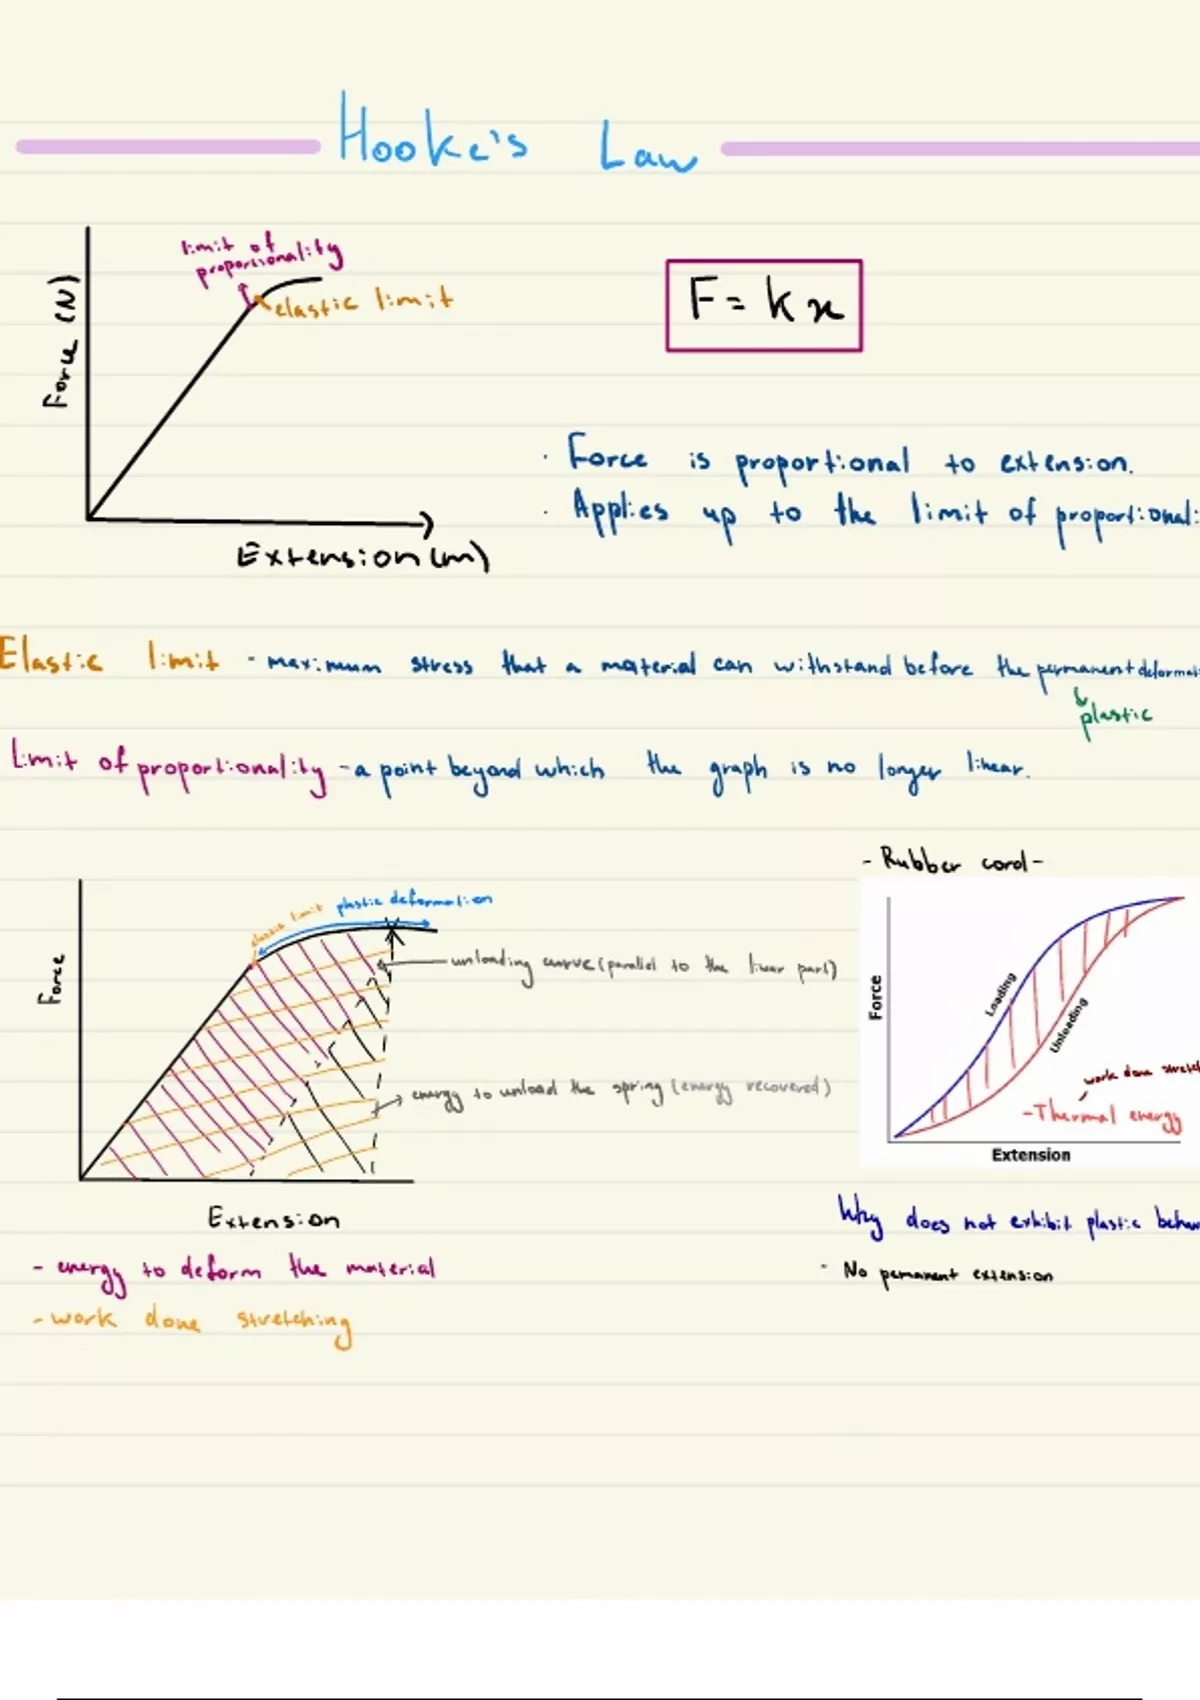 Hooke's Law
limit of
proportionality
elastic limit
Force (N)
Extension (m)
F = kx
· Force is proportional to extension.
· Applies up to the limit of proportional
Elastic limit - maximum stress that a material can withstand before the permanent deformat
plastic
limit of proportionality - a point beyond which the graph is no longer linear.
- Rubber cord -
elastic limit plastic deformation
Force
unloading curve (parallel to the linear part)
energy to unload the spring (energy recovered)
Extension
Force
Loading
Unloading
work done stretch
- Thermal energy
Extension
- energy to deform the material
- work done stretching
Why does not exhibit plastic behav
· No permanent extension